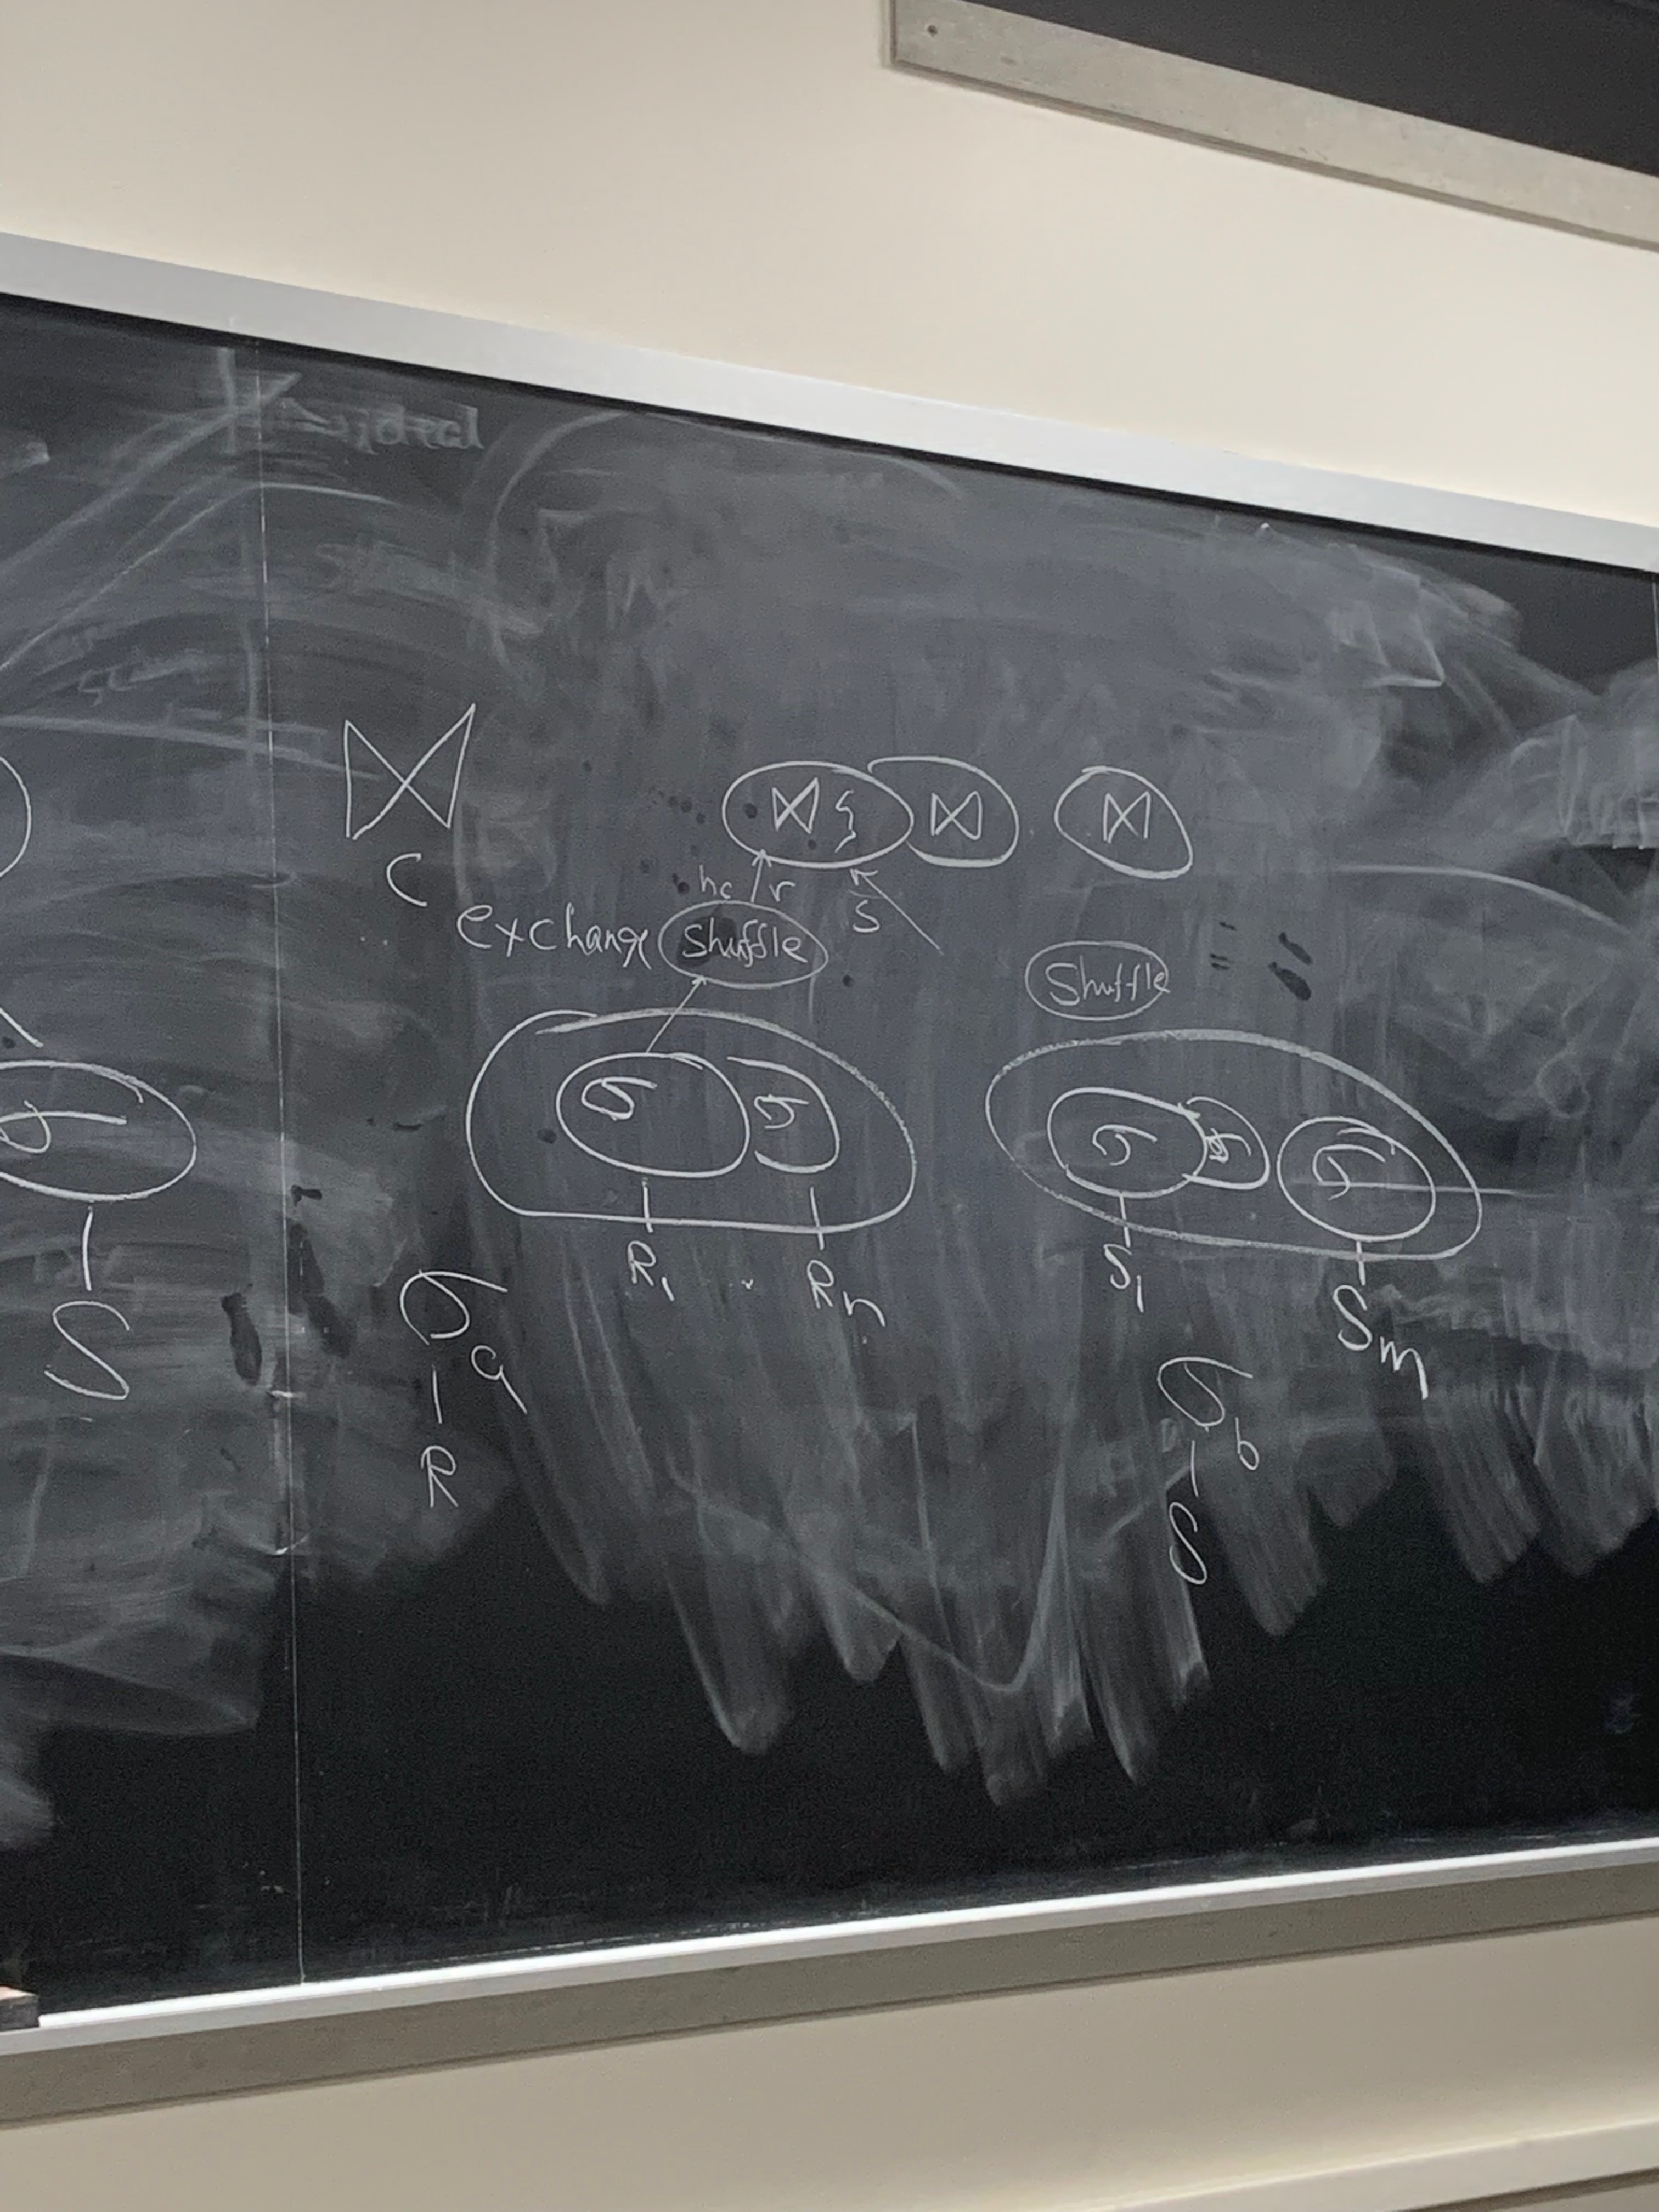 ⋈ ⋈ ⋈ ⋈
C
hc r
S
exchange Shuffle
Shuffle
σ σ σ σ σ
σ
R₁ .. Rₙ S₁ Sₘ
S
σₐ
R
σ_b
S